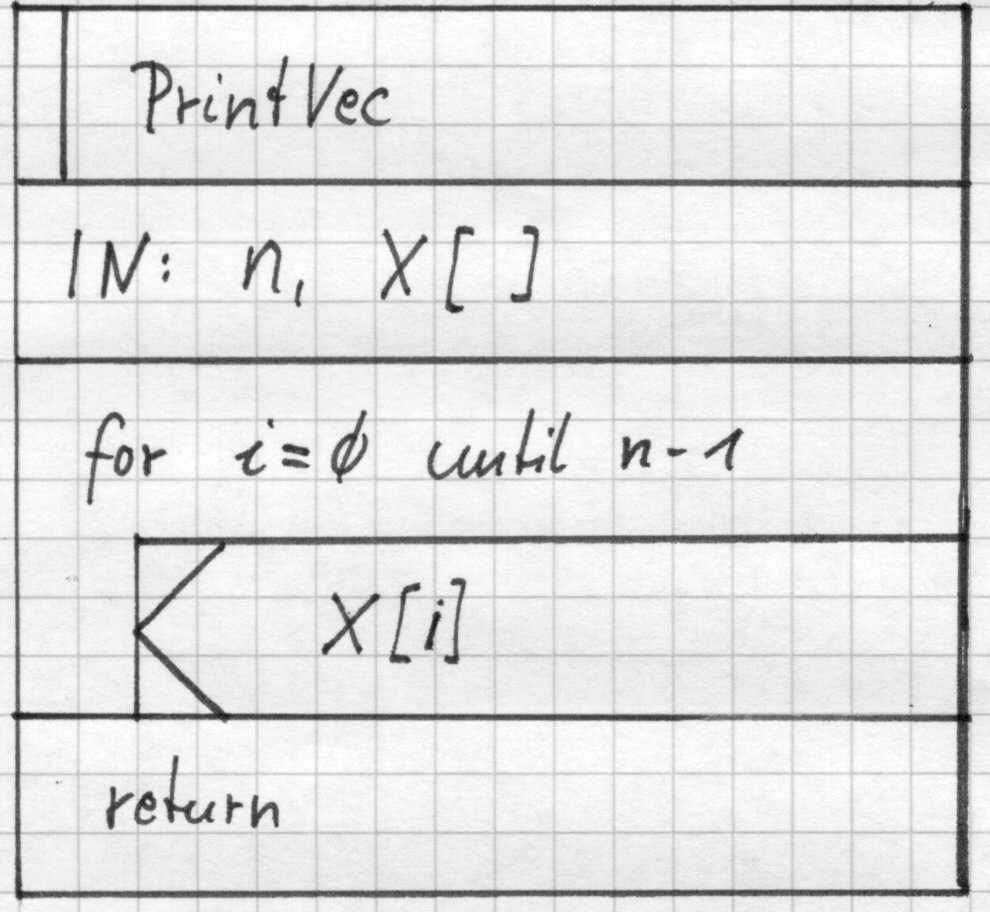 PrintVec
IN: n, X[ ]
for i=0 until n-1
X[i]
return